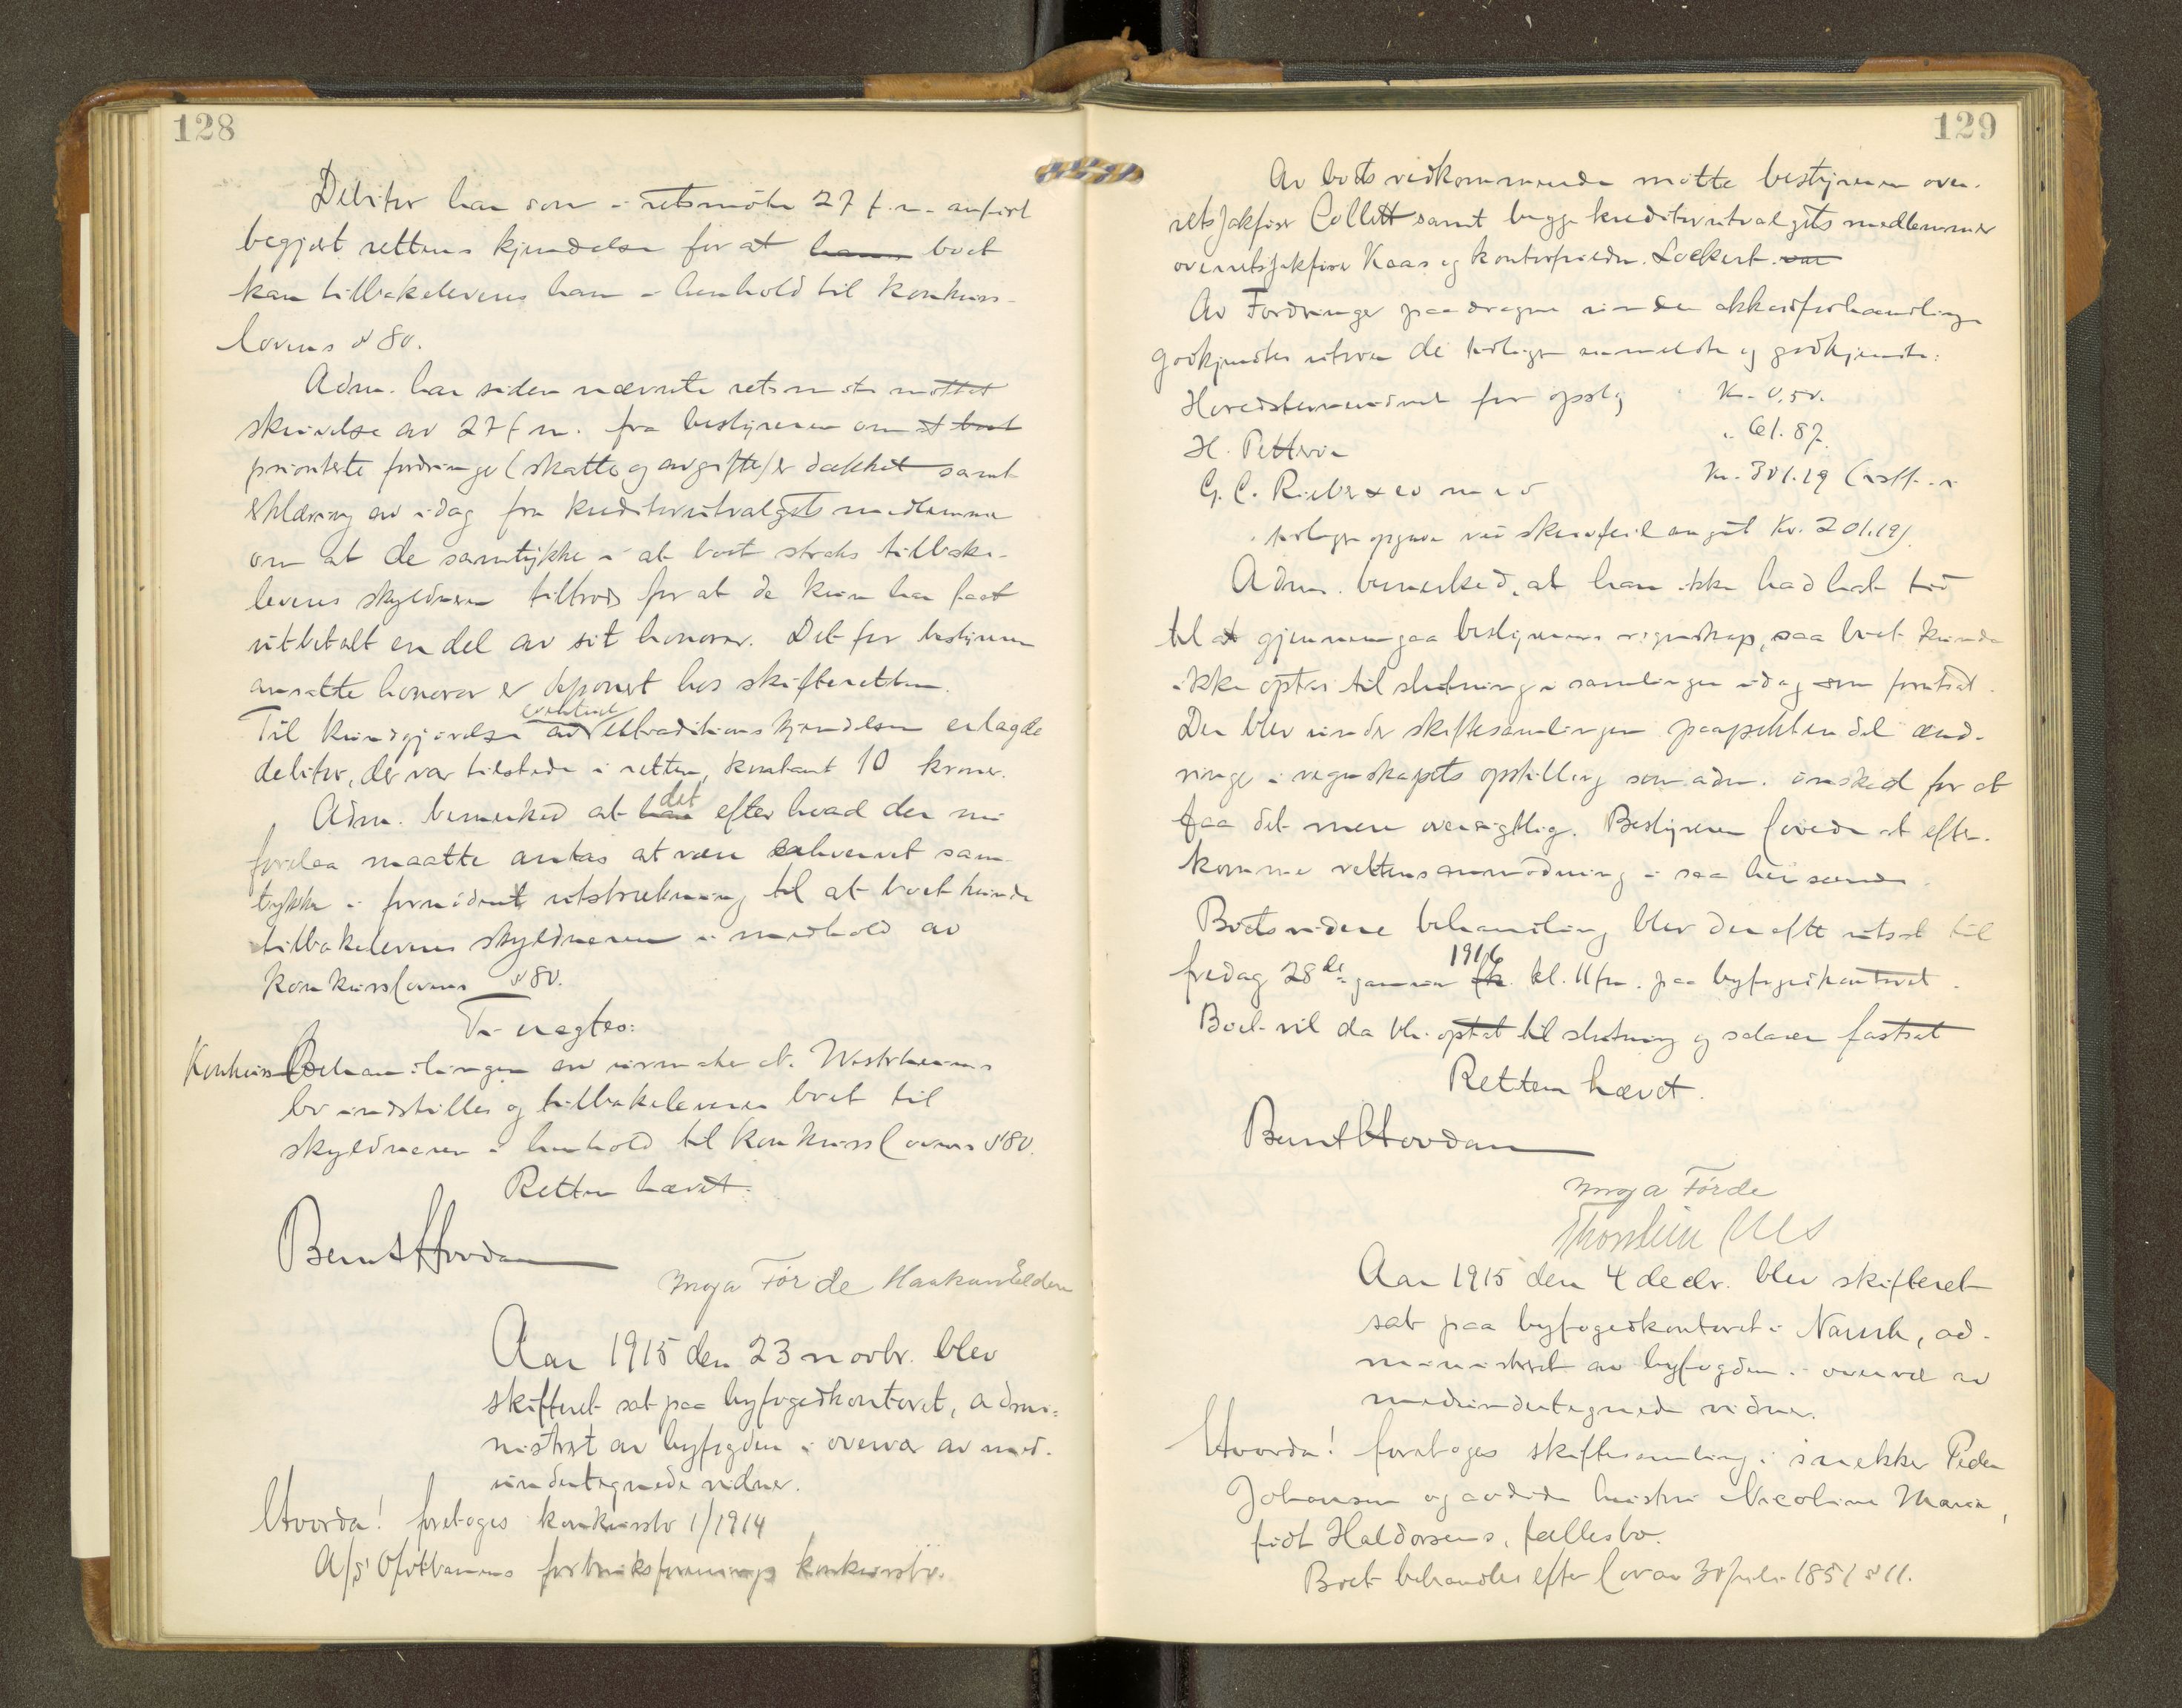 128
Debitor har som i retsmøte 27 f.m. anført
begjært rettens kjendelse for at ham boet
kan tilbakeleveres ham i henhold til konkurs-
lovens § 80.
Adm. har siden nævnte retsmøte mottat
skrivelse av 27 f.m. fra bestyreren om at boet
prioriterte fordringer (skatter og avgifter) er dækket samt
erklæring av idag fra kreditorutvalgets medlemmer
om at de samtykker i at boet straks tilbake-
leveres skyldneren tiltrods for at de kun har faat
utbetalt en del av sit honorar. Det for bestyreren
ansatte honorar er deponert hos skifteretten.
Til kundgjørelse av eventuel extraditionskjendelse erlagde
debitor, der var tilstede i retten, kontant 10 kroner.
Adm. bemerked at han det efter hvad der nu
forelaa maatte antas at være erhvervet sam-
tykke i fornødent utstrækning til at boet kunde
tilbakeleveres skyldneren i medhold av
konkurslovens § 80.
Ti vagtes:
Konkursbehandlingen av urmaker N. Westrheims
bo indstilles og tilbakeleveres boet til
skyldneren i henhold til konkurslovens § 80.
Retten hævet.
Bernt Hovdan
Inga Førde Haakon Elden
Aar 1915 den 23 novbr. blev
skifteret sat paa byfogedkontoret, admi-
nistrert av byfogden i overvær av med-
undertegnede vidner.
Hvorda! foretoges konkursbo 1/1914
A/S Ofotbanens forbruksforenings konkursbo.
129
Av boets vedkommende møtte bestyreren over-
retssakfører Collett samt begge kreditorutvalgets medlemmer
overretssakfører Kaas og kontorfuldm. Lockert. var
Av Fordringer paadragne under akkordforhandling
godkjendtes utover de tidligere anmeldte og godkjendte:
Herredstennisbanet for opslag Kr. 0,50.
H. Petterson " 61.87.
G. C. Rieber & co med Kr. 301.19 (istf. i
tidligere opgave ved skrivfeil angit Kr. 201.19).
Adm. bemerked, at han ikke hadde hat tid
til at gjennemgaa bestyrerens regnskap, saa boet kunde
ikke optas til slutning i samlingen idag som forutsat.
Der blev under skiftesamlingen paapekt en del ænd-
ringer i regnskapets opstilling som adm. ønsked for at
faa det mere oversigtlig. Bestyreren lovede at efter-
komme rettens anmodning i saa henseende.
Boets videre behandling blev derefter utsat til
fredag 28de januar fk. 1916 kl. 11 fm. paa byfogedkontoret.
Boet vil da bli optat til slutning og salærer fastsat
Retten hævet.
Bernt Hovdan
Inga Førde
Thorstein Nes
Aar 1915 den 4 decbr. blev skifteret
sat paa byfogedkontoret i Narvik, ad-
ministrert av byfogden i overvær av
medundertegnede vidner.
Hvorda! foretoges skiftesamling i snekker Peder
Johansen og avdøde hustru Nicoline Maria,
født Haldorsens, fællesbo.
Boet behandles efter lov av 30 juli 1851 § 11.